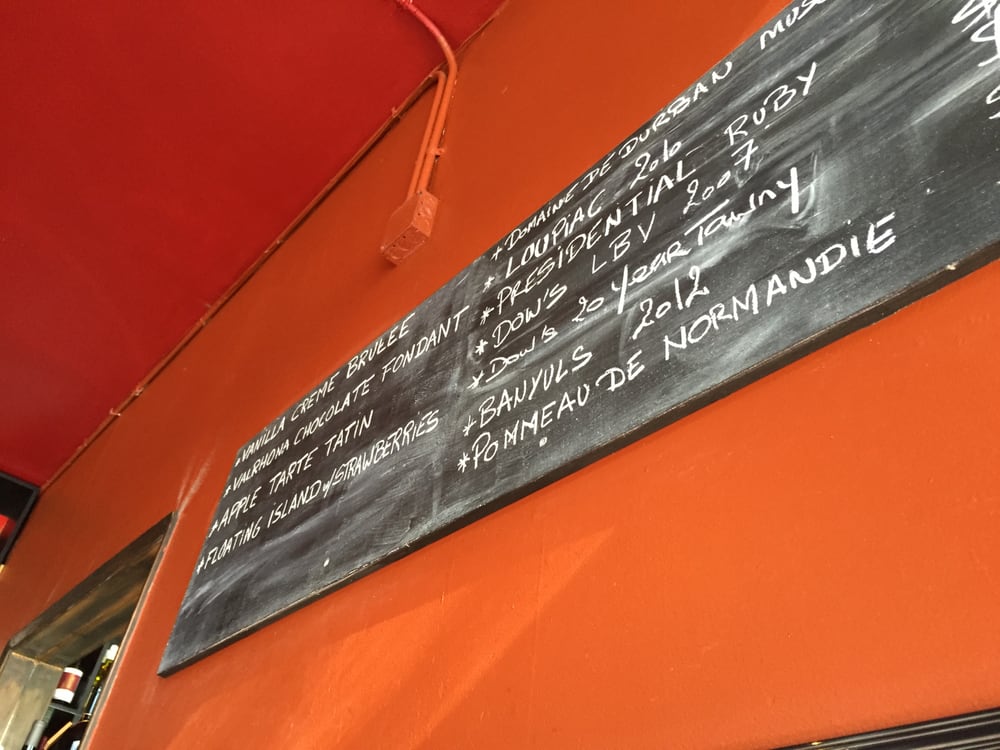 *VANILLA CREME BRULEE
*VALRHONA CHOCOLATE FONDANT
*APPLE TARTE TATIN
*FLOATING ISLAND w/STRAWBERRIES
*DOMAINE DE DURBAN
*LOUPIAC
*PRESIDENTIAL RUBY
*DOW'S LBV 2007
*Dow's 20 Year Tawny
*BANYULS 2012
*POMMEAU DE NORMANDIE